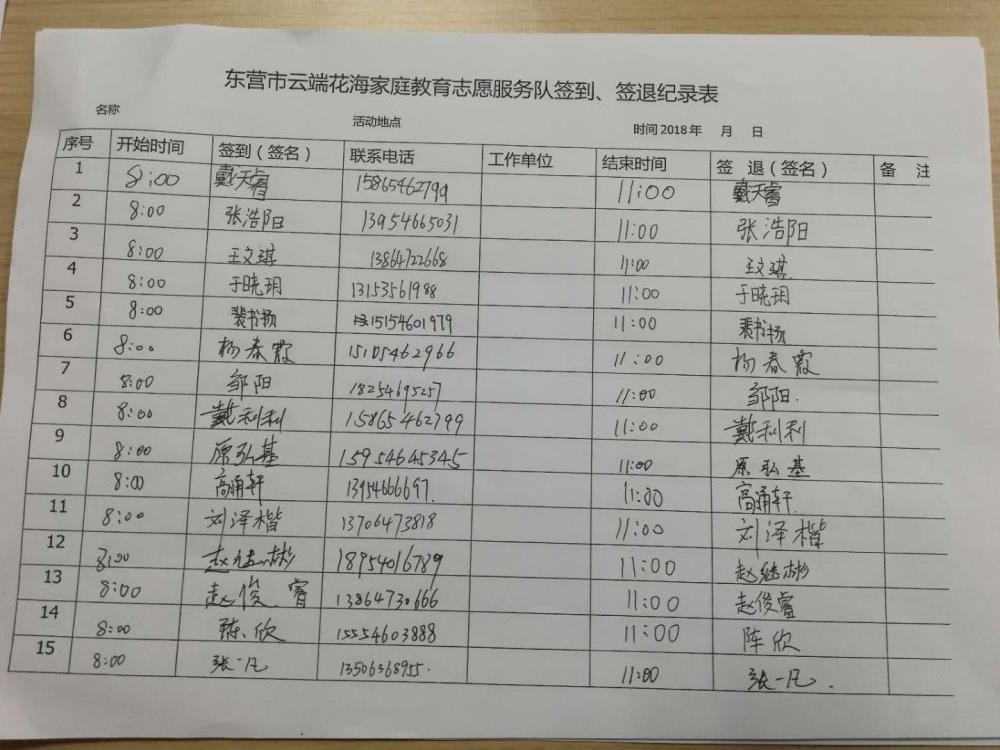 东营市云端花海家庭教育志愿服务队签到、签退纪录表
名称 活动地点 时间 2018 年 月 日
序号 开始时间 签到（签名） 联系电话 工作单位 结束时间 签 退（签名） 备 注
1 8:00 戴天睿 15865462799 11:00 戴天睿
2 8:00 张浩阳 13954665031 11:00 张浩阳
3 8:00 王文琪 13864722668 11:00 王文琪
4 8:00 于晓玥 13153561988 11:00 于晓玥
5 8:00 裴书扬 15154601979 11:00 裴书扬
6 8:00 杨春霞 15105462966 11:00 杨春霞
7 8:00 邹阳 18254695257 11:00 邹阳.
8 8:00 戴利利 15865462799 11:00 戴利利
9 8:00 原弘基 15954645345 11:00 原弘基
10 8:00 高浦轩 13954666697. 11:00 高浦轩
11 8:00 刘泽楷 13706473818 11:00 刘泽楷
12 8:00 赵继彬 18954016789 11:00 赵继彬
13 8:00 赵俊睿 13864730666 11:00 赵俊睿
14 8:00 陈欣 15554603888 11:00 陈欣
15 8:00 张一凡 13506368955. 11:00 张一凡.